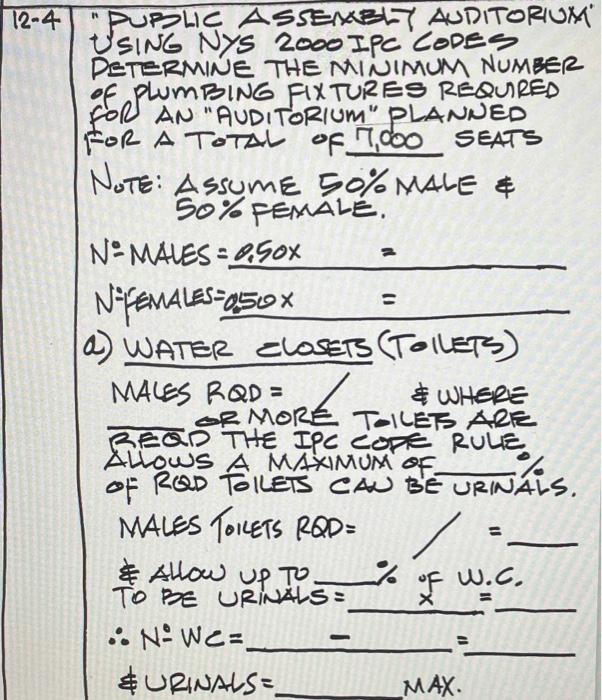 12-4 "PUBLIC ASSEMBLY AUDITORIUM"
USING NYS 2000 IPC CODES
DETERMINE THE MINIMUM NUMBER
OF PLUMBING FIXTURES REQUIRED
FOR AN "AUDITORIUM" PLANNED
FOR A TOTAL OF 7,000 SEATS
NOTE: ASSUME 50% MALE &
50% FEMALE.
Nº MALES = 0.50X =
Nº FEMALES = 0.50 X =
a) WATER CLOSETS (TOILETS)
MALES RQD = / & WHERE
____ OR MORE TOILETS ARE
REQD THE IPC CODE RULE
ALLOWS A MAXIMUM OF ____%
OF RQD TOILETS CAN BE URINALS.
MALES TOILETS RQD= / = ____
& ALLOW UP TO ____% OF W.C.
TO BE URINALS = ____ X ____ = ____
∴ Nº WC = ____ - ____ = ____
& URINALS = ____ MAX.